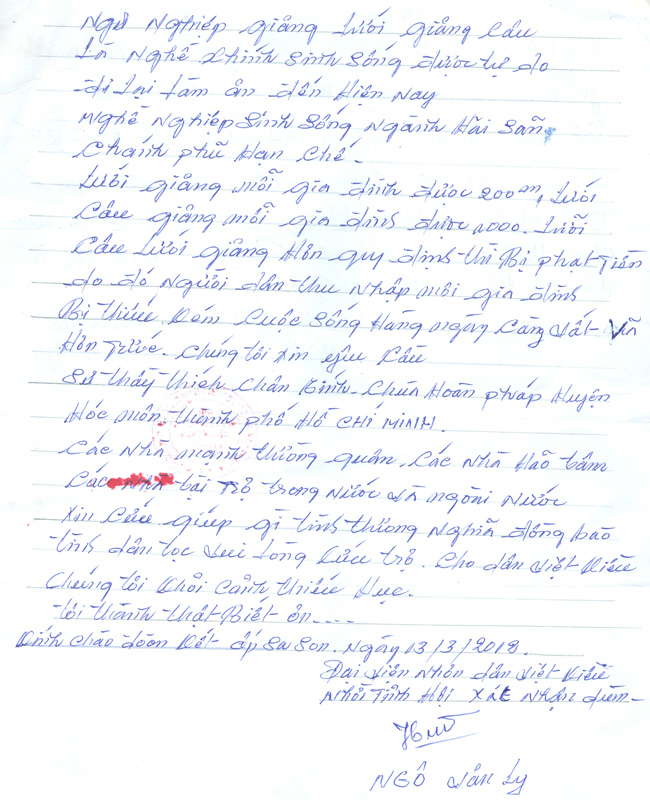 Ngư Nghiệp giăng lưới giăng câu
Là Nghề chính sinh sống được tự do
đi lại làm ăn đến Hiện Nay
Nghề Nghiệp sinh sống Ngành Hãi Sãn,
Chánh phũ Hạn Chế.
Lưới giăng mỗi gia đình được 200m, Lưới
Câu giăng mỗi gia đình được 1000. Lưỡi
Câu Lưới giăng Hơn quy định thì Bị phạt Tiền
do đó Người dân thu Nhập mỗi gia đình
Bị thiếu kém Cuộc Sống Hàng ngày Càng Vất Vã
Hơn Trước. Chúng tôi xin yêu Cầu
Sư thầy thích Chân Tính. Chùa Hoằn pháp Huyện
Hóc môn. thành phố Hồ CHÍ MINH.
Các Nhà mạnh thường quân. Các Nhà Hão tâm
Các Nhà tài Trợ trong Nước và ngoài Nước
Xin Cứu giúp gì tình thương Nghĩa đồng bào
tình dân tọc vui lòng Cứu trợ. Cho dân việt Kiều
Chúng tôi khỏi Cảnh thiếu Hục.
tôi thành thật Biết ơn....
Kính Chào đoàn Kết ấp Sa Son. Ngày 13/3/2012.
Đại diện Nhân dân việt Kiều
Xác Nhận
NGÔ văn Ly